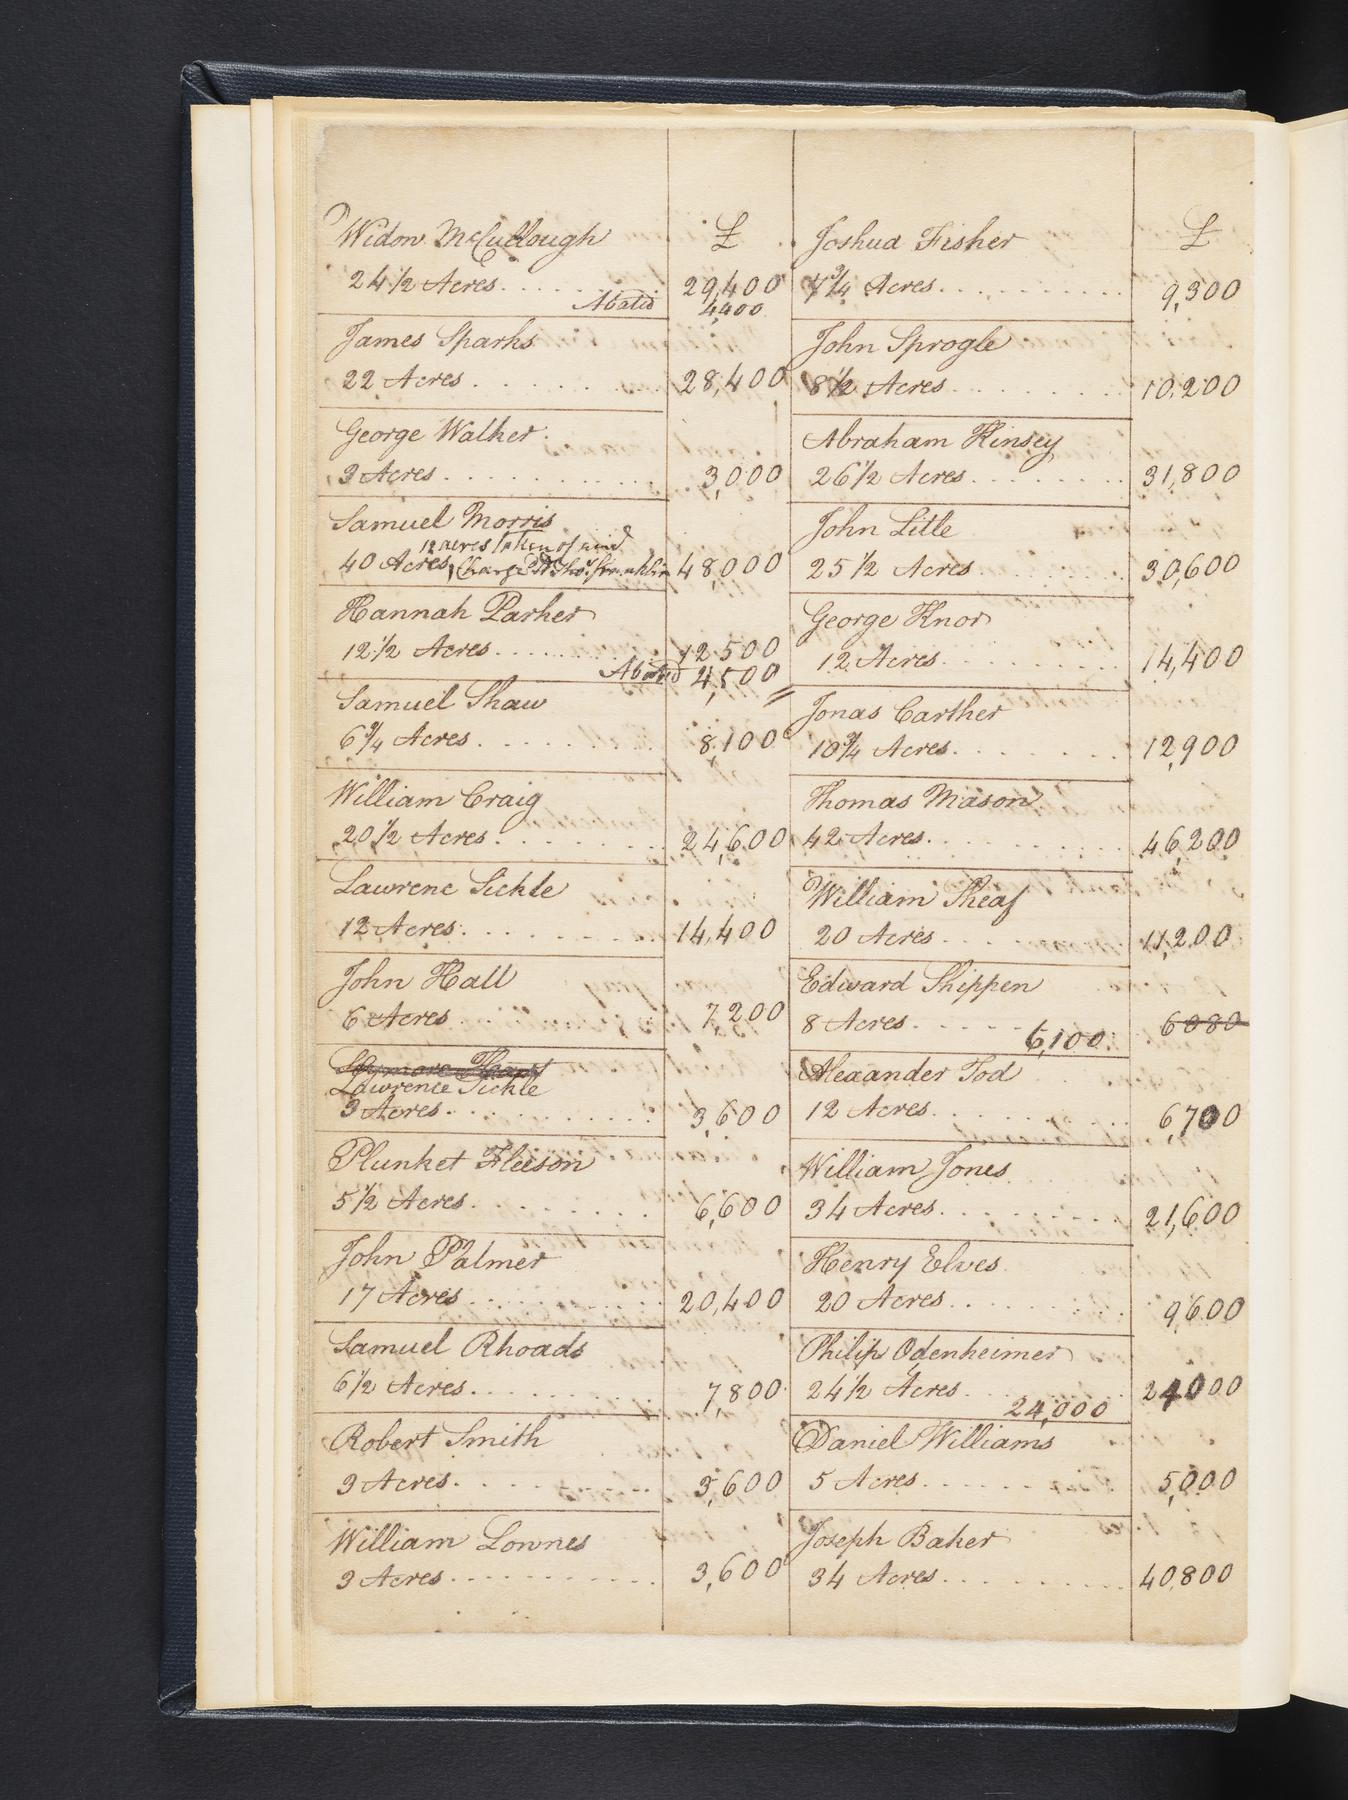 Widow McCullough £
24 1/2 Acres 29,400
Abated 4,400
James Sparks
22 Acres 28,400
George Walker
3 Acres 3,000
Samuel Morris
12 acres taken of and
40 Acres Charged Thos. Franklin 48,000
Hannah Parker
12 1/2 Acres 12500
Abated 4,500
Samuel Shaw
6 3/4 Acres 8,100
William Craig
20 1/2 Acres 24,600
Lawrenc Sickle
12 Acres 14,400
John Hall
6 Acres 7,200
Lawrence Sickle
3 Acres 3,600
Plunket Fleeson
5 1/2 Acres 6,600
John Palmer
17 Acres 20,400
Samuel Rhoads
6 1/2 Acres 7,800
Robert Smith
3 Acres 3,600
William Lownes
3 Acres 3,600
Joshua Fisher £
7 3/4 Acres 9,300
John Sprogle
8 1/2 Acres 10,200
Abraham Kinsey
26 1/2 Acres 31,800
John Litle
25 1/2 Acres 30,600
George Knor
12 Acres 14,400
Jonas Carther
10 3/4 Acres 12,900
Thomas Mason
42 Acres 46,200
William Sheaf
20 Acres 11,200
Edward Shippen
8 Acres 6080
6,100
Alexander Tod
12 Acres 6,700
William Jones
34 Acres 21,600
Henry Elves
20 Acres 9,600
Philip Odenheimer
24 1/2 Acres 24000
24,000
Daniel Williams
5 Acres 5,000
Joseph Baker
34 Acres 40,800